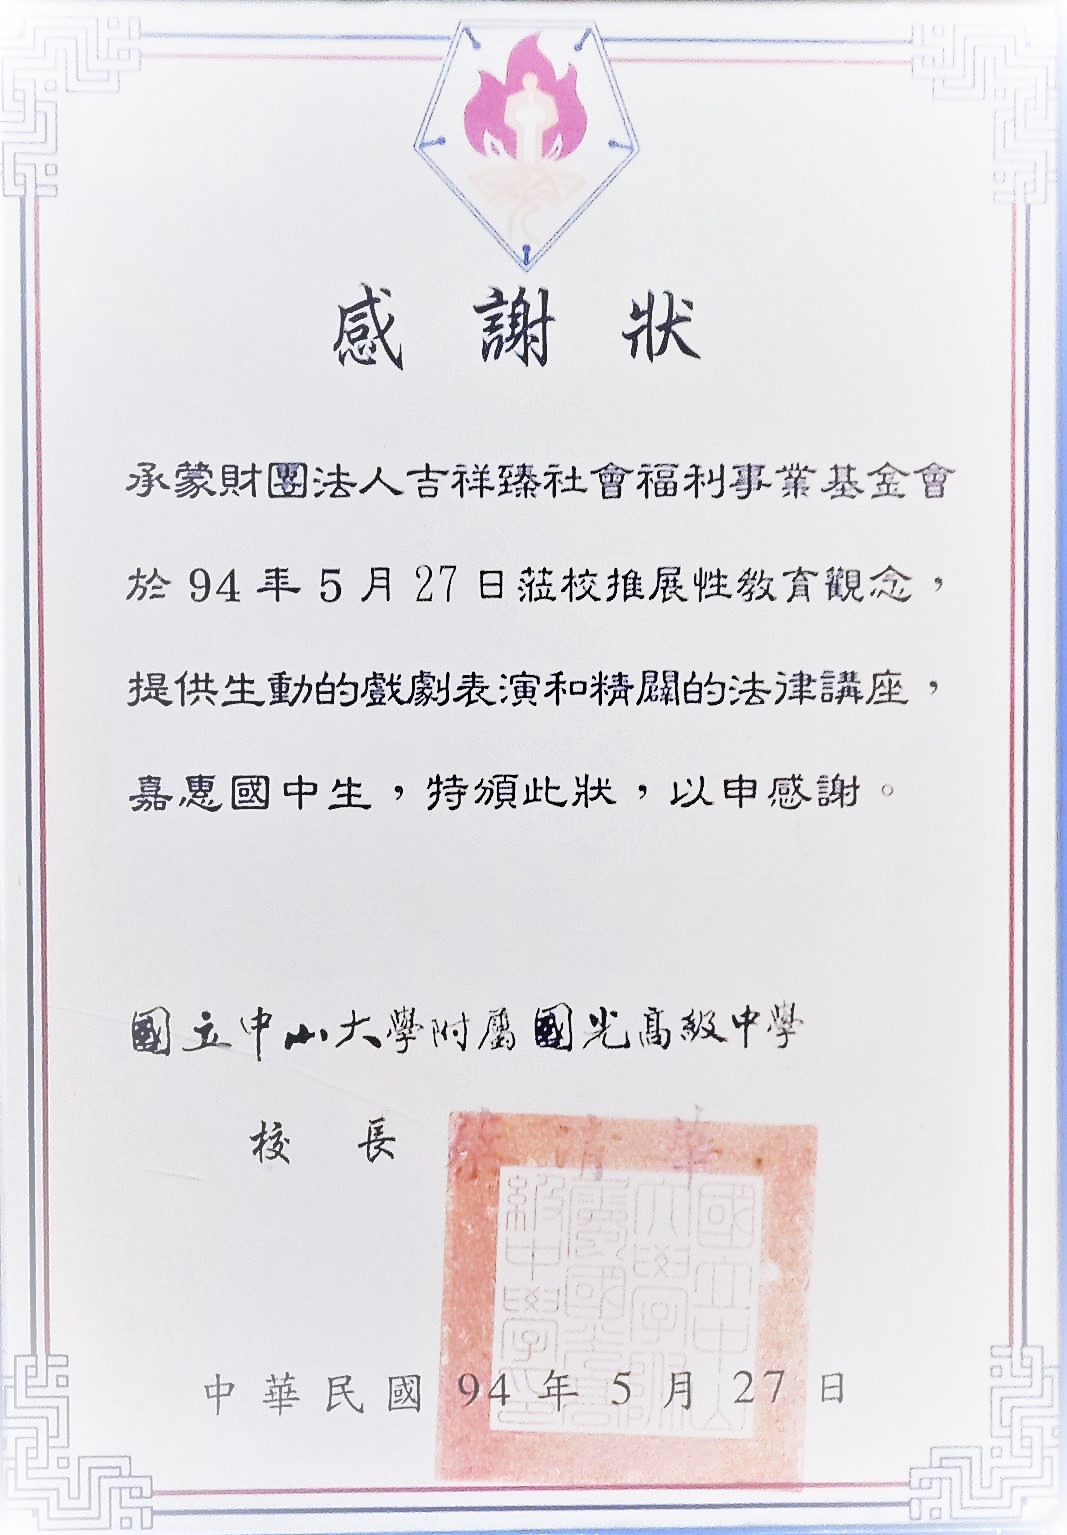 感謝狀
承蒙財團法人吉祥臻社會福利事業基金會
於94年5月27日蒞校推展性教育觀念，
提供生動的戲劇表演和精闢的法律講座，
嘉惠國中生，特頒此狀，以申感謝。
國立中山大學附屬國光高級中學
校長 清華
國立中山大學附屬國光高級中學印
中華民國94年5月27日